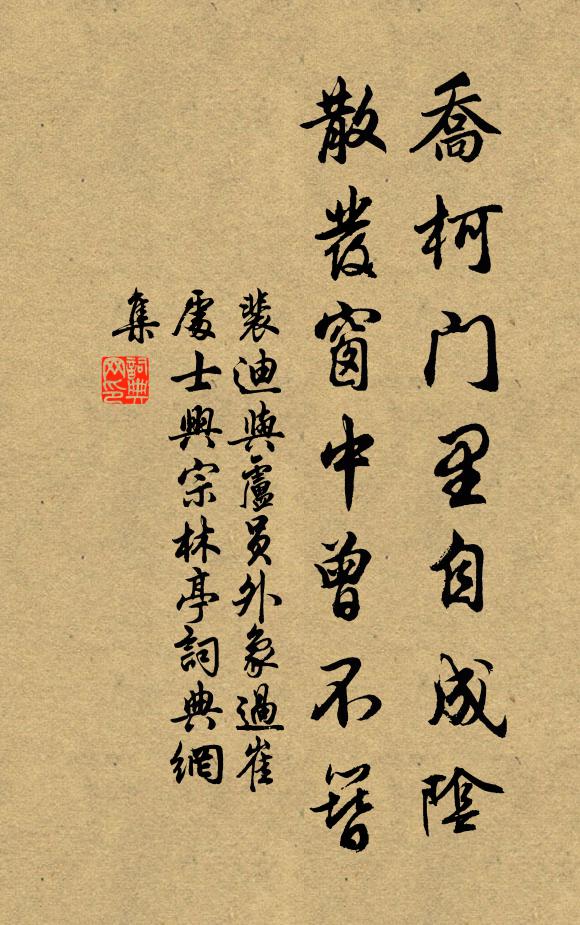 喬柯门里自成陰
散发窗中曾不簪
裴迪與盧员外象過崔
處士興宗林亭詞典網
集
詞典
网印